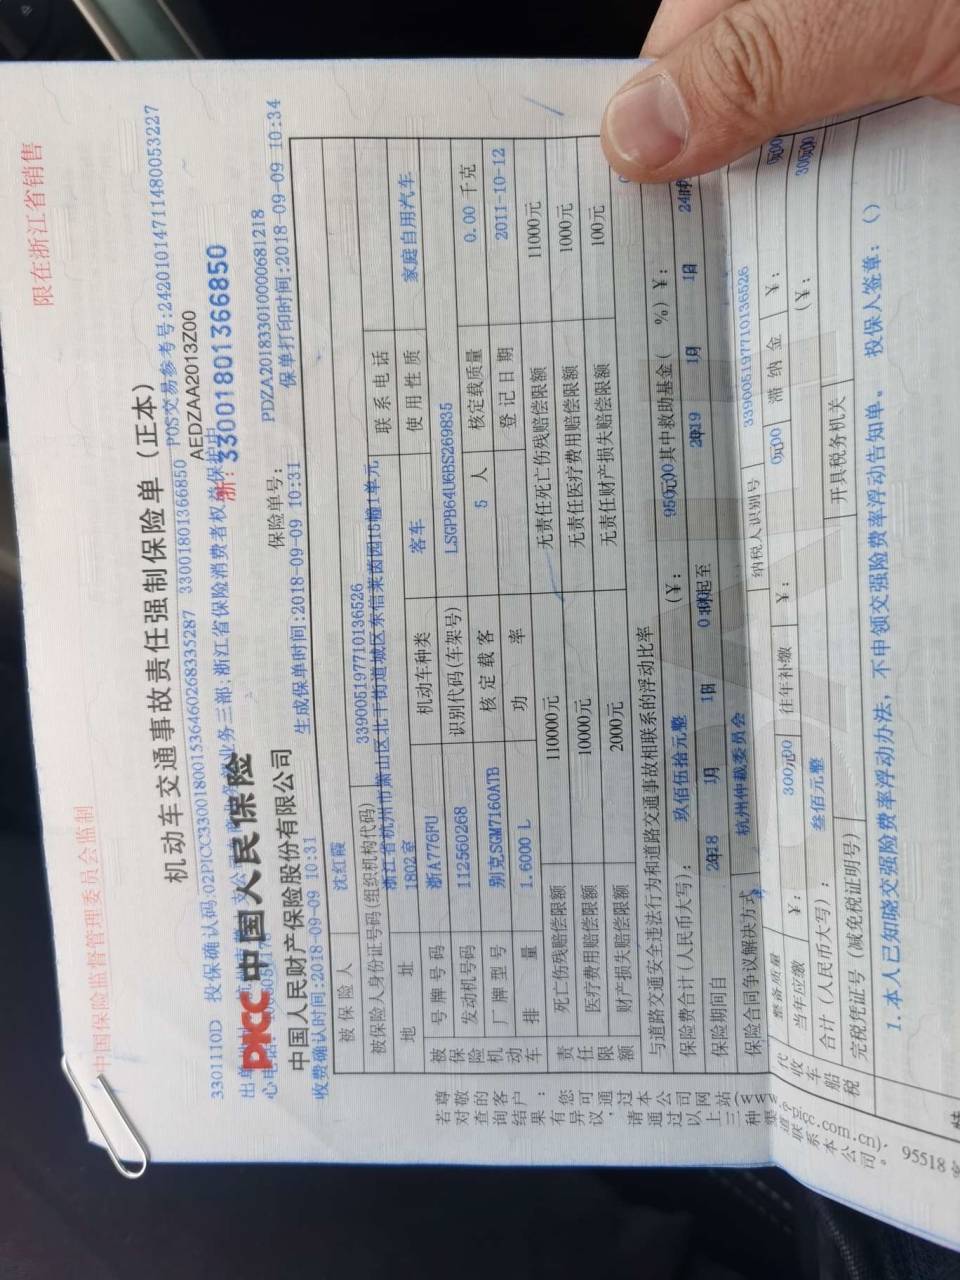 中国保险监督管理委员会监制
限在浙江省销售
机动车交通事故责任强制保险单(正本)
3301110D 投保确认码:02PICC330018001536460268335287 33001801366850 POS交易参考号:242010147114480053227
AEDZAA2013Z00
浙:33001801366850
PICC 中国人民保险
保险单号: PDZA201833010000681218
中国人民财产保险股份有限公司
收费确认时间:2018-09-09 10:31 生成保单时间:2018-09-09 10:31 保单打印时间:2018-09-09 10:34
被保险人 沈红霞
被保险人身份证号码(组织机构代码) 339005197710136526
地址 浙江省杭州市萧山区北干街道城区东信莱茵园15幢1单元1802室 联系电话
被保险机动车
号牌号码 浙A776PU 机动车种类 客车 使用性质 家庭自用汽车
发动机号码 112560268 识别代码(车架号) LSGPB64U6BS269835
厂牌型号 别克SGM7160ATB 核定载客 5 人 核定载质量 0.00 千克
排量 1.6000 L 功率 登记日期 2011-10-12
责任限额
死亡伤残赔偿限额 110000元 无责任死亡伤残赔偿限额 11000元
医疗费用赔偿限额 10000元 无责任医疗费用赔偿限额 1000元
财产损失赔偿限额 2000元 无责任财产损失赔偿限额 100元
与道路交通安全违法行为和道路交通事故相联系的浮动比率
保险费合计(人民币大写): 玖佰伍拾元整 (¥: 950.00 元)其中救助基金( %)¥:
保险期间自 2018 年 月 1 日 0 时起至 2019 年 1 月 1 日 24 时
保险合同争议解决方式 杭州仲裁委员会
代收车船税
整备质量 纳税人识别号 339005197710136526
当年应缴 ¥: 300.00 元 往年补缴 ¥: 0.00 元 滞纳金 ¥: 0.00
合计(人民币大写): 叁佰元整 (¥: 300.00
完税凭证号(减免税证明号) 开具税务机关
1.本人已知晓交强险费率浮动办法,不申领交强险费率浮动告知单。 投保人签章:()
尊敬的客户:您可通过本公司网站(www.e-picc.com.cn)、
95518